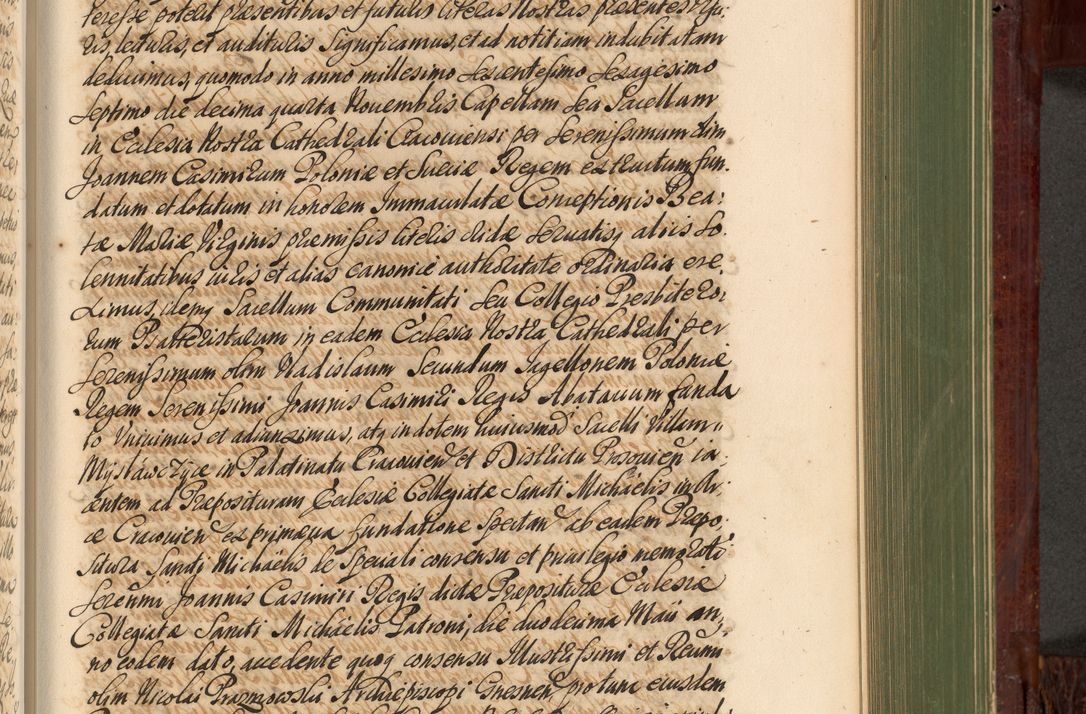 teresse poterit præsentibus et futuris literas Nostras præsentes
ris, lecturis, et audituris Significamus, et ad notitiam indubitatam
deducimus, quomodo in anno millesimo Sexcentesimo Sexagesimo
Septimo die decima quarta Nouembris Capellam Seu Sacellum
in Ecclesia Nostra Cathedrali Cracouiensi per Serenissimum olim
Joannem Casimirum Poloniæ et Sueciæ Regem extructum fun-
datum et dotatum in honorem Immaculatæ Conceptionis Bea-
tæ Mariæ Virginis præmissis literis dictæ Seruatisq aliis So-
lennitatibus iuris et alias canonice authoritate ordinaria ere-
ximus, idemq Sacellum Communitati Seu Collegio Presbitero-
rum Psalteristarum in eadem Ecclesia Nostra Cathedrali per
Serenissimum olim Vladislaum Secundum Jagellonem Poloniæ
Regem Serenissimi Joannis Casimiri Regis Abatauum funda
to Vniuimus et adiunximus, atq in dotem huiusmodi Sacelli Villam
Mysławczyce in Palatinatu Cracouien et Districtu Proszouien ia-
centem ad Præposituram Ecclesiæ Collegiatæ Sancti Michaelis in Ar-
ce Cracouien ex primæua fundatione Spectan ab eadem Præpo-
situra Sancti Michaëlis de Speciali consensu et priuilegio memorati
Serenmi Joannis Casimiri Regis dictæ Præposituræ Ecclesiæ
Collegiatæ Sancti Michaëlis Patroni, die duodecima Maii an-
no eodem dato, accedente quoq consensu Illustrissimi et Reuermi
olim Nicolai Prazmowski Archiepiscopi Gnesnen, pro tunc eiusdem